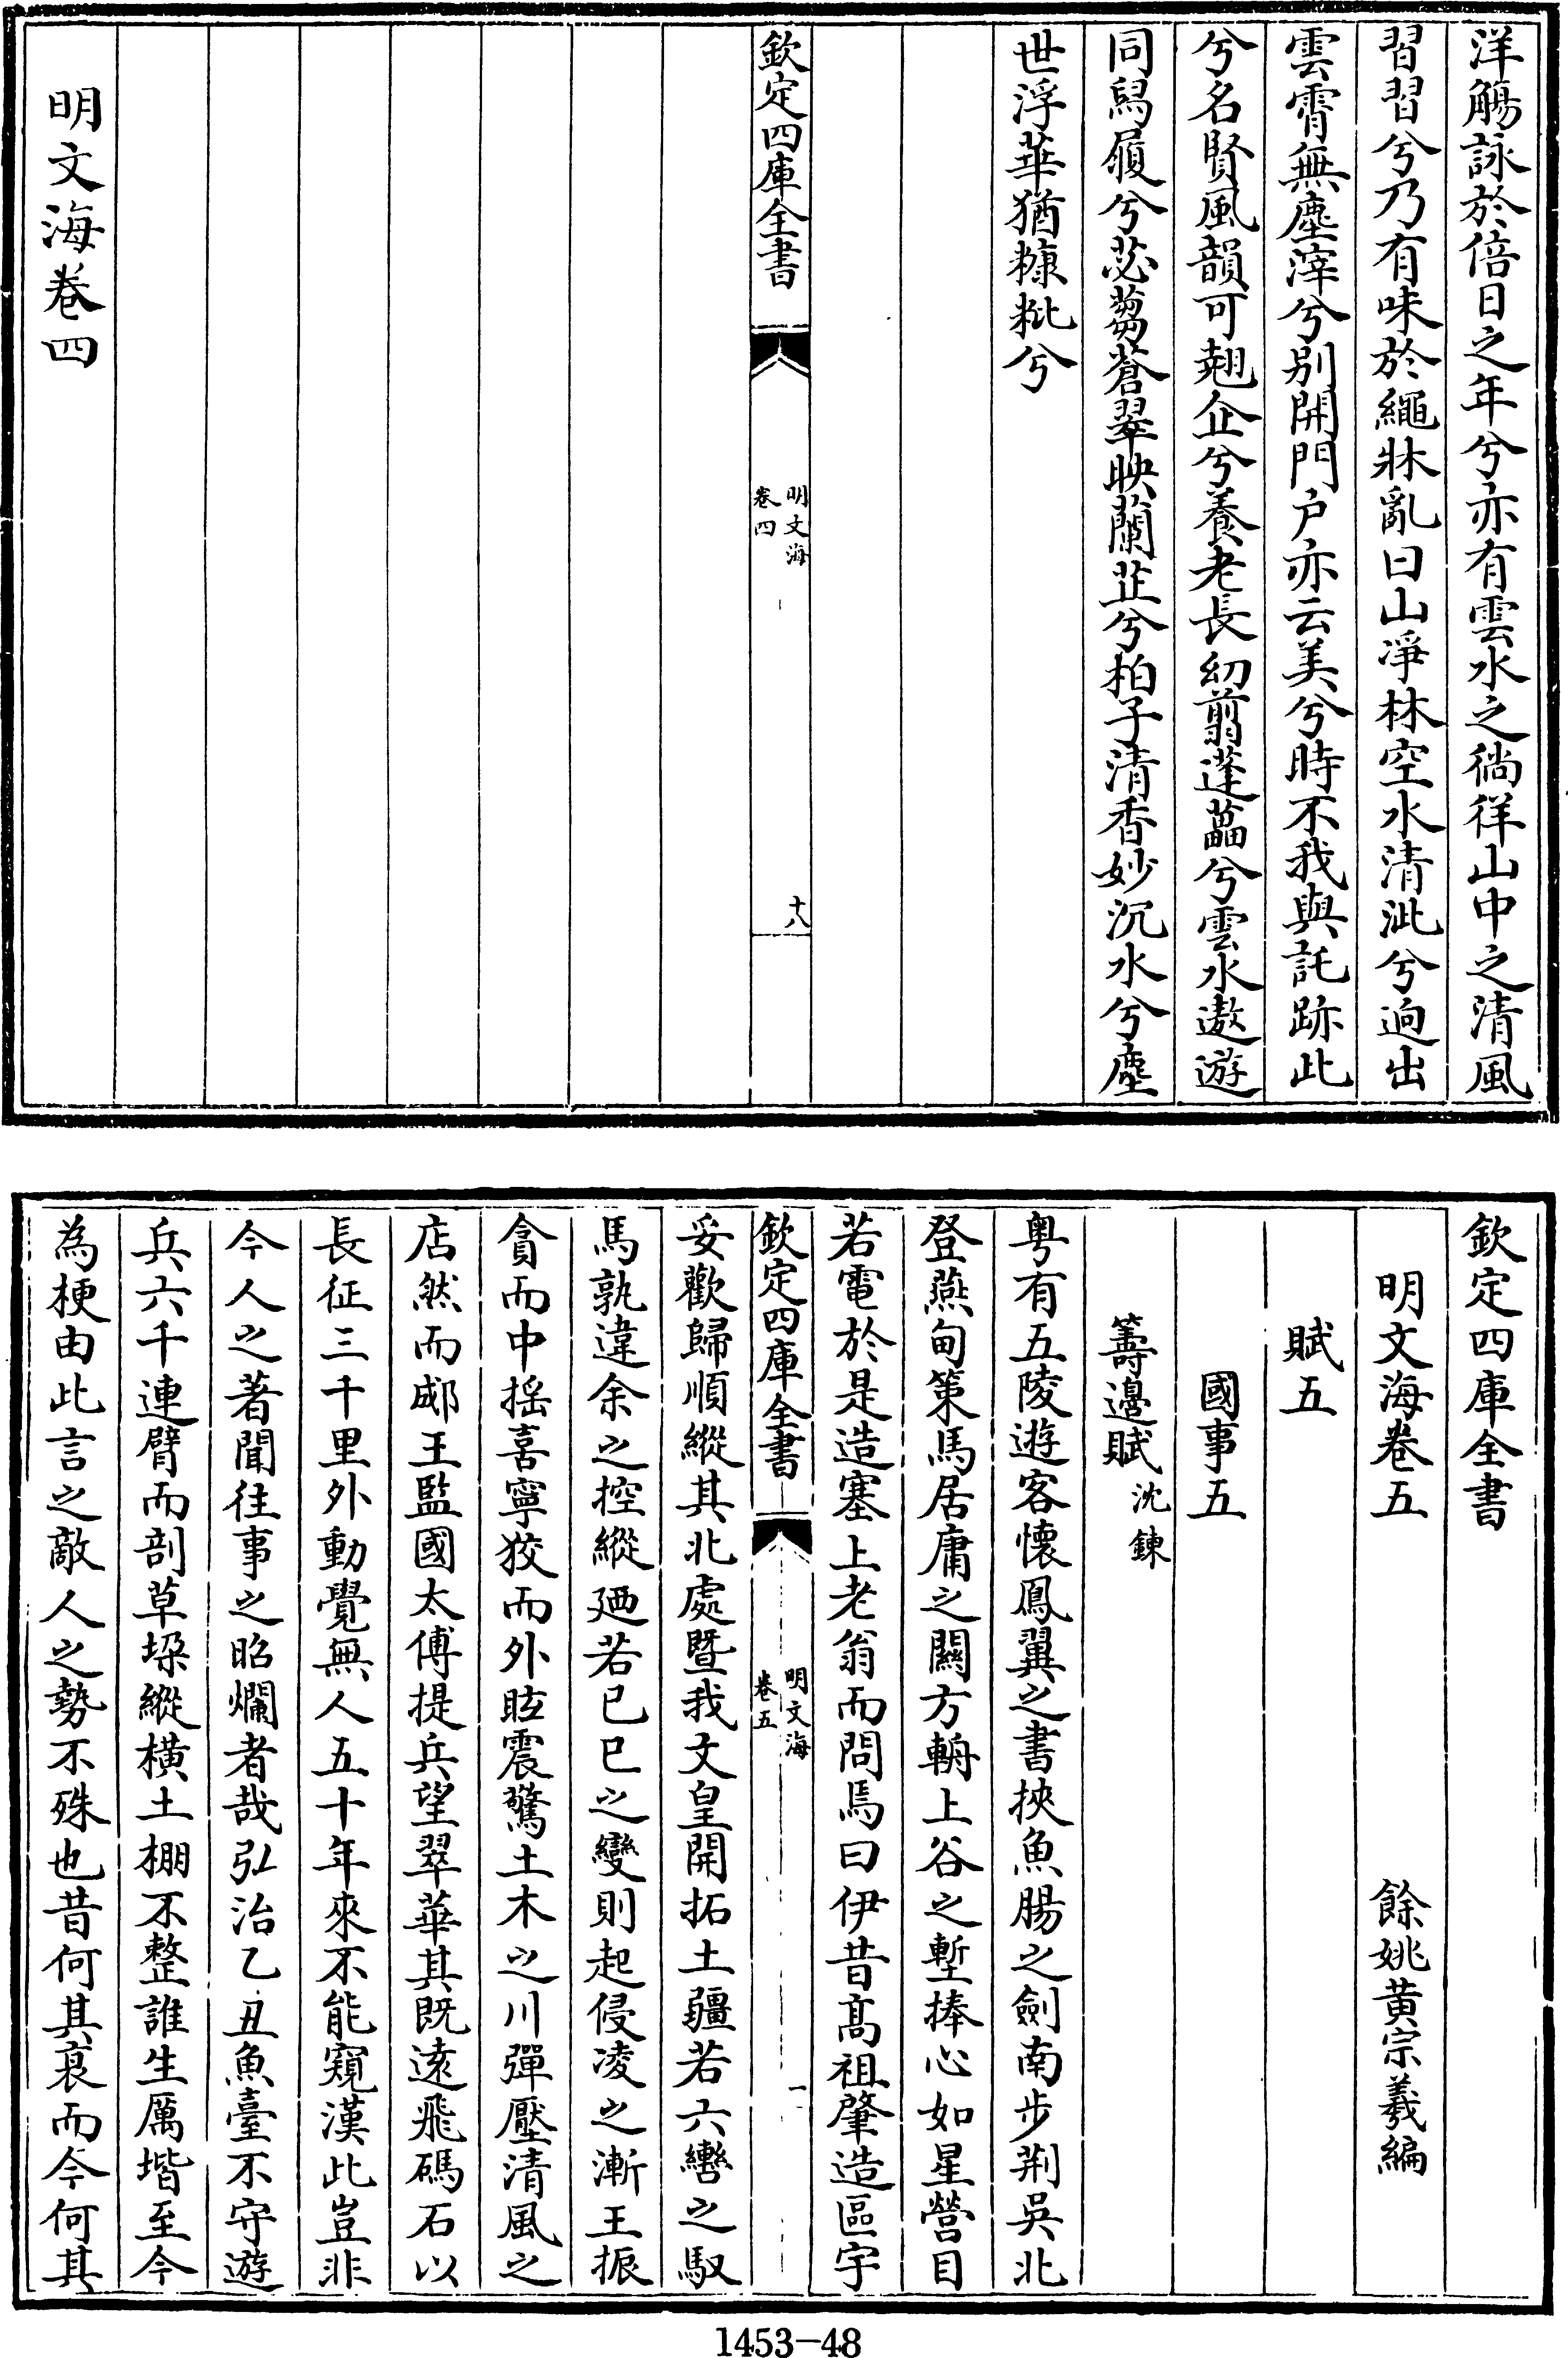 洋觴詠於倍日之年兮亦有雲水之徜徉山中之清風
習習兮乃有味於繩牀亂曰山凈林空水清泚兮逈出
雲霄無塵滓兮别開門户亦云美兮時不我與託跡此
兮名賢風韻可翹企兮養老長幼翦蓬藟兮雲水遨遊
同舄履兮苾蒭蒼翠映蘭芷兮柏子清香妙沉水兮塵
世浮華猶糠粃兮
欽定四庫全書
明文海
卷四
十八
明文海卷四
欽定四庫全書
明文海卷五
餘姚黄宗羲編
賦五
國事五
籌邊賦 沈鍊
粤有五陵遊客懷鳳翼之書挾魚腸之劍南步荆吳北
登燕甸策馬居庸之闗方輈上谷之塹捧心如星營目
若電於是造塞上老翁而問焉曰伊昔髙祖肇造區宇
欽定四庫全書
明文海
卷五
一
妥歡歸順縱其北處暨我文皇開拓土疆若六轡之馭
馬孰違余之控縱廼若已巳之變則起侵凌之漸王振
貪而中摇喜寧狡而外眩震驚土木之川彈壓清風之
店然而郕王監國太傅提兵望翠華其既逺飛碼石以
長征三千里外動覺無人五十年來不能窺漢此豈非
今人之著聞往事之昭爛者哉弘治乙丑魚臺不守遊
兵六千連臂而剖草垜縱横土棚不整誰生厲堦至今
為梗由此言之敵人之勢不殊也昔何其衰而今何其
1453-48